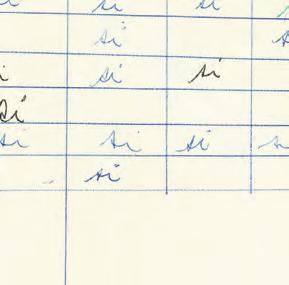 si si
si
si si
si
si si si
si